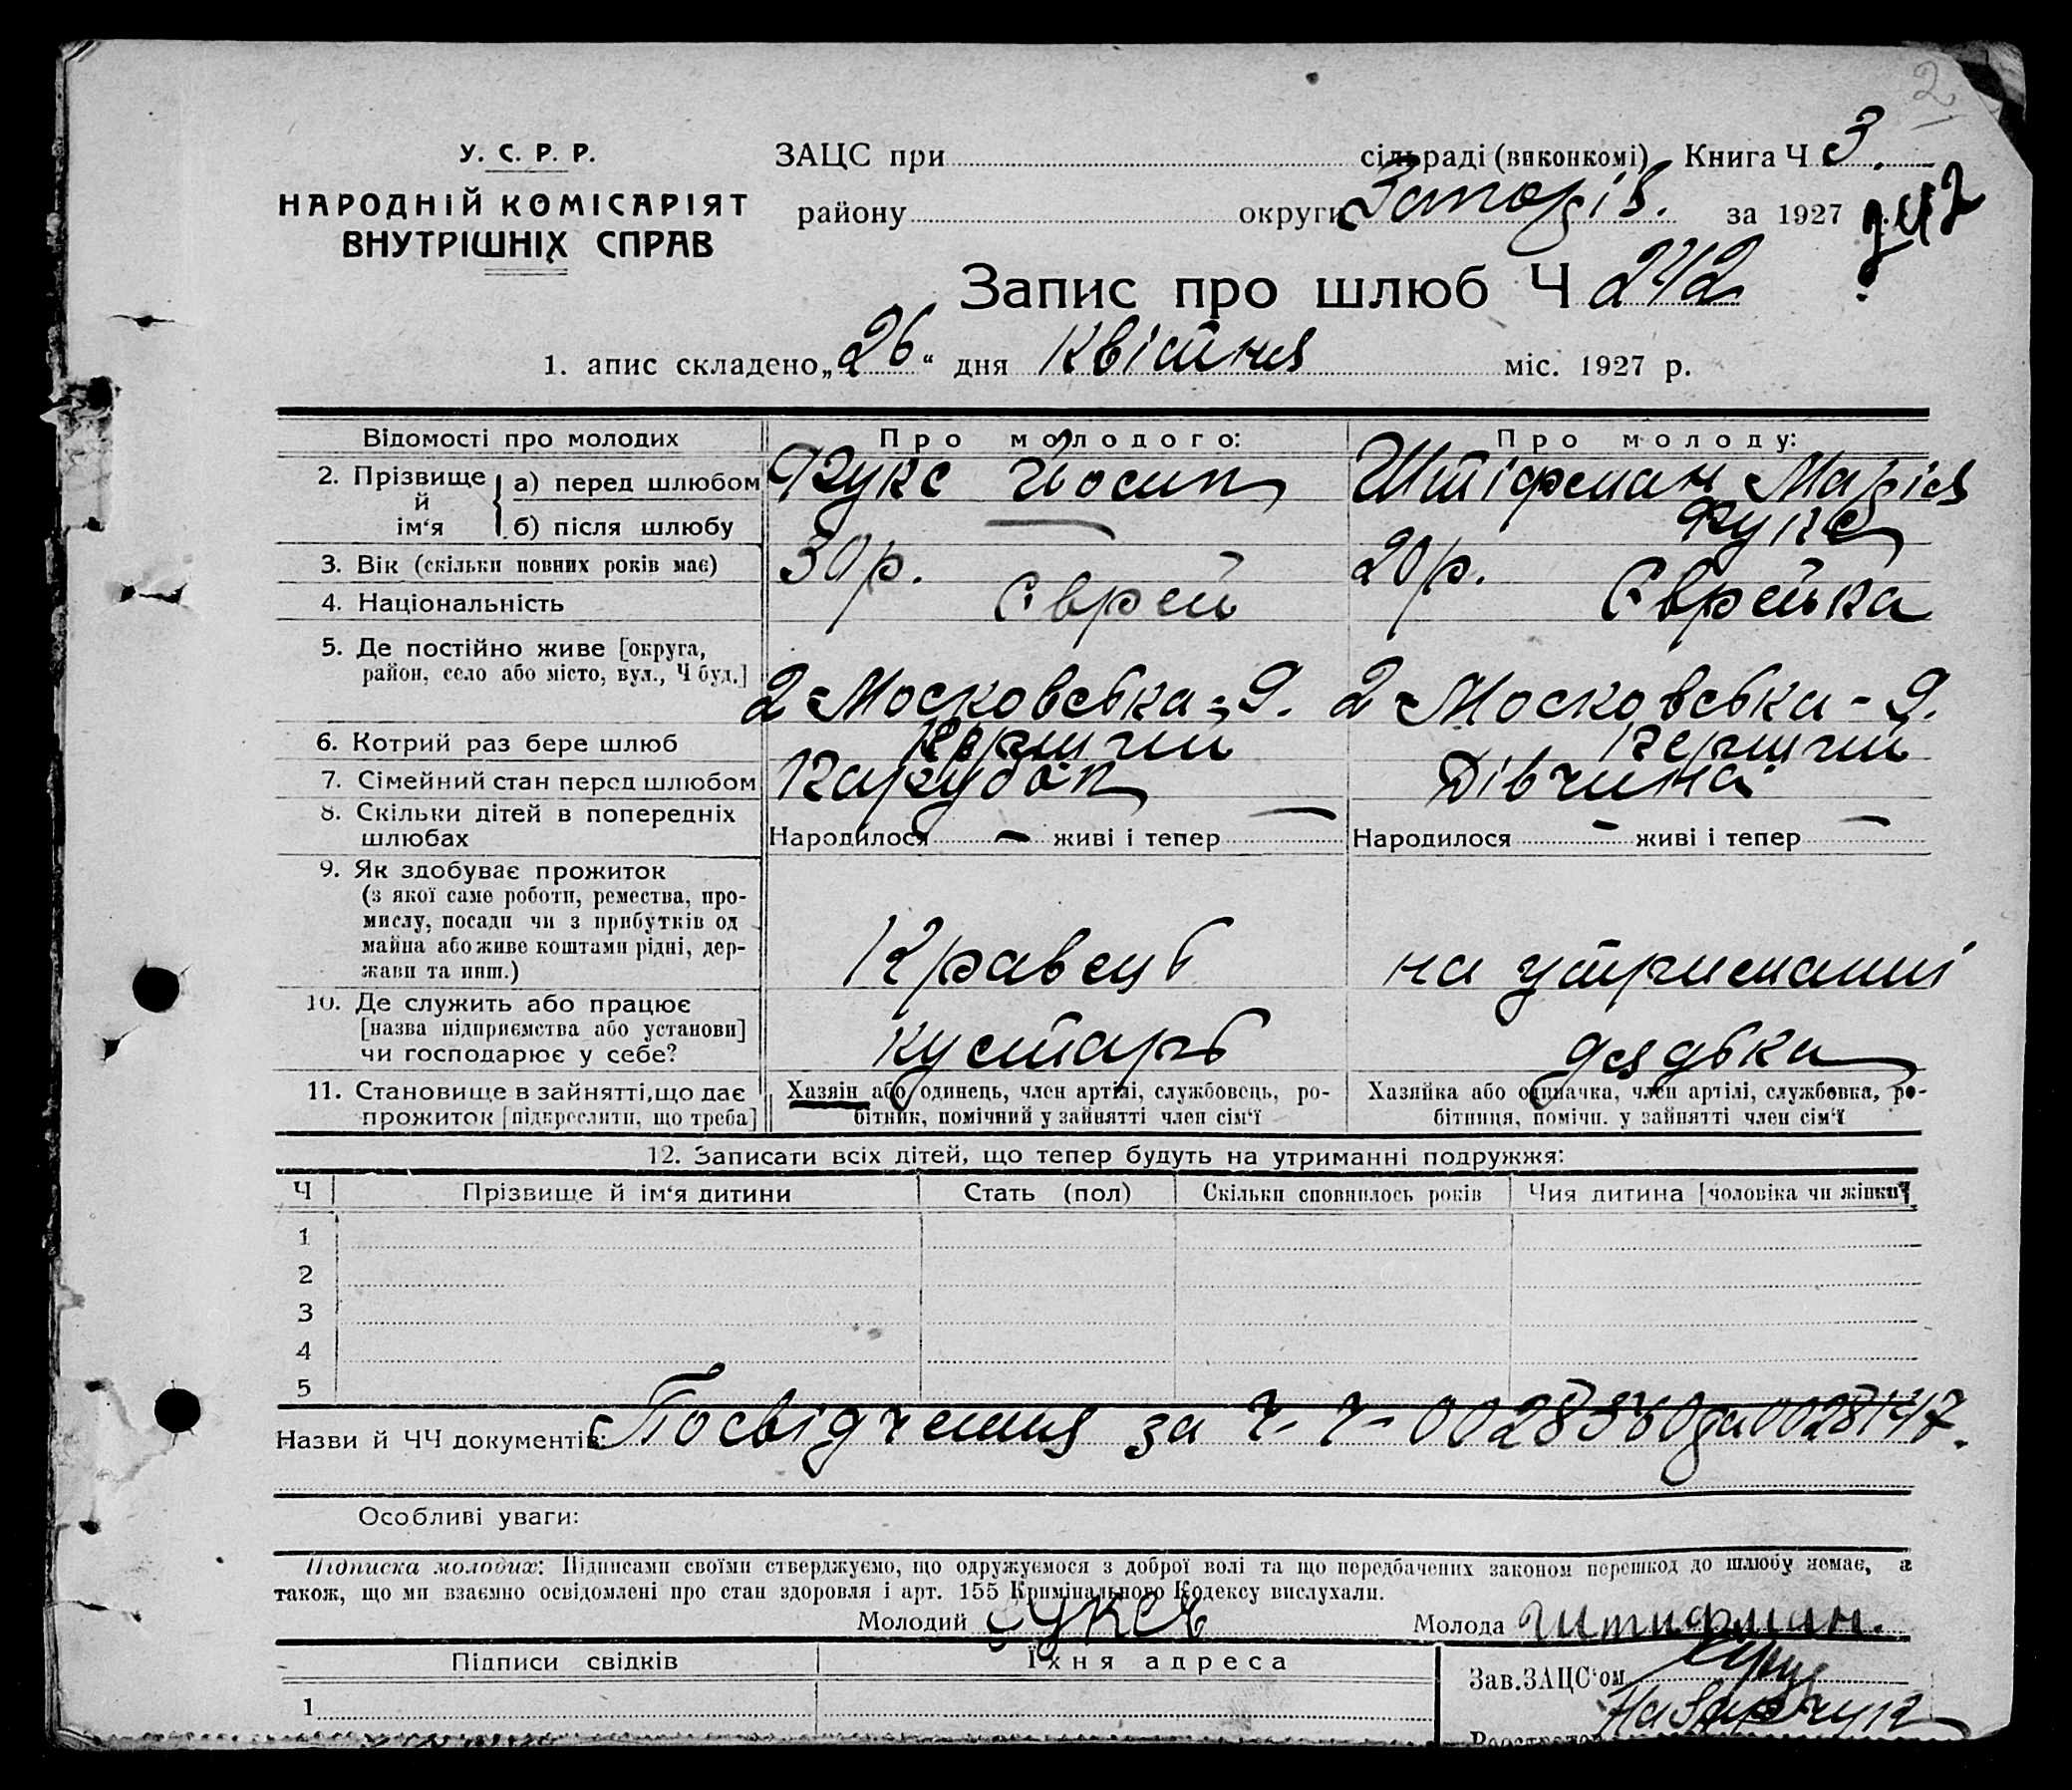 2
У. С. Р. Р.
НАРОДНІЙ КОМІСАРІЯТ
ВНУТРІШНІХ СПРАВ
ЗАЦС при сільраді (виконкомі) Книга Ч 3.
району округи Запоріз. за 1927 р.
242
Запис про шлюб Ч 242
1. апис складено „26“ дня Квітня міс. 1927 р.
Відомості про молодих Про молодого: Про молоду:
2. Прізвище й ім‘я а) перед шлюбом Фукс Йосип Штіфман Марія
б) після шлюбу — Фукс
3. Вік (скільки повних років має) 30 р. 20 р.
4. Національність Єврей Єврейка
5. Де постійно живе [округа,
район, село або місто, вул., Ч буд.] 2 Московська - 9. 2 Московська - 9.
6. Котрий раз бере шлюб Перший Перший
7. Сімейний стан перед шлюбом Парубок Дівчина
8. Скільки дітей в попередніх
шлюбах Народилося — живі і тепер — Народилося — живі і тепер —
9. Як здобуває прожиток
(з якої саме роботи, ремества, про-
мислу, посади чи з прибутків од
майна або живе коштами рідні, дер-
жави та инш.) Кравець на утриманні
10. Де служить або працює
[назва підприємства або установи]
чи господарює у себе? кустарь дядька
11. Становище в зайнятті, що дає
прожиток [підкреслити, що треба]
Хазяін або одинець, член артілі, службовець, ро-
бітник, помічний у зайнятті член сім‘ї
Хазяйка або одиначка, член артілі, службовка, ро-
бітниця, помічн. у зайнятті член сім‘ї
12. Записати всіх дітей, що тепер будуть на утриманні подружжя:
Ч Прізвище й ім‘я дитини Стать (пол) Скільки сповнилось років Чия дитина [чоловіка чи жінки]
1
2
3
4
5
Назви й ЧЧ документів: Посвідчення за Ч-Ч- 0028360 та 0028147.
Особливі уваги:
Підписка молодих: Підписами своїми стверджуємо, що одружуємося з доброї волі та що передбачених законом перешкод до шлюбу немає, а
також, що ми взаємно освідомлені про стан здоровля і арт. 155 Кримінального Кодексу вислухали.
Молодий Фукс Молода Штифман.
Підписи свідків Їхня адреса
Зав. ЗАЦС‘ом
1
Назарчук